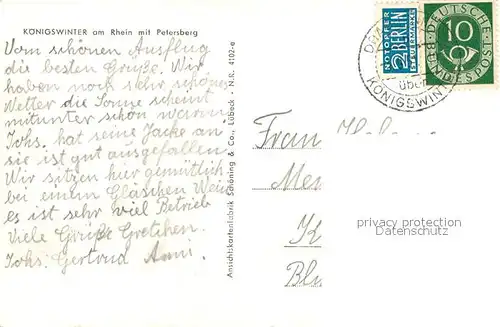 KÖNIGSWINTER am Rhein mit Petersberg
Vom schönen Ausflug
die besten Grüße. Wir
haben noch sehr schönes
Wetter die Sonne scheint
mitunter schön warm
Johs. hat seine Jacke an
sie ist gut ausgefallen.
Wir sitzen hier gemütlich
bei einem Gläschen Wein
es ist sehr viel Betrieb
Viele Grüße Gretchen.
Johs. Gertrud Anni.
Ansichtskartenfabrik Schöning & Co., Lübeck · N.R. 4102-e
NOTOPFER
2 BERLIN
STEUERMARKE
DEUTSCHE BUNDESPOST
10
über
KÖNIGSWIN
Frau
privacy protection
Datenschutz